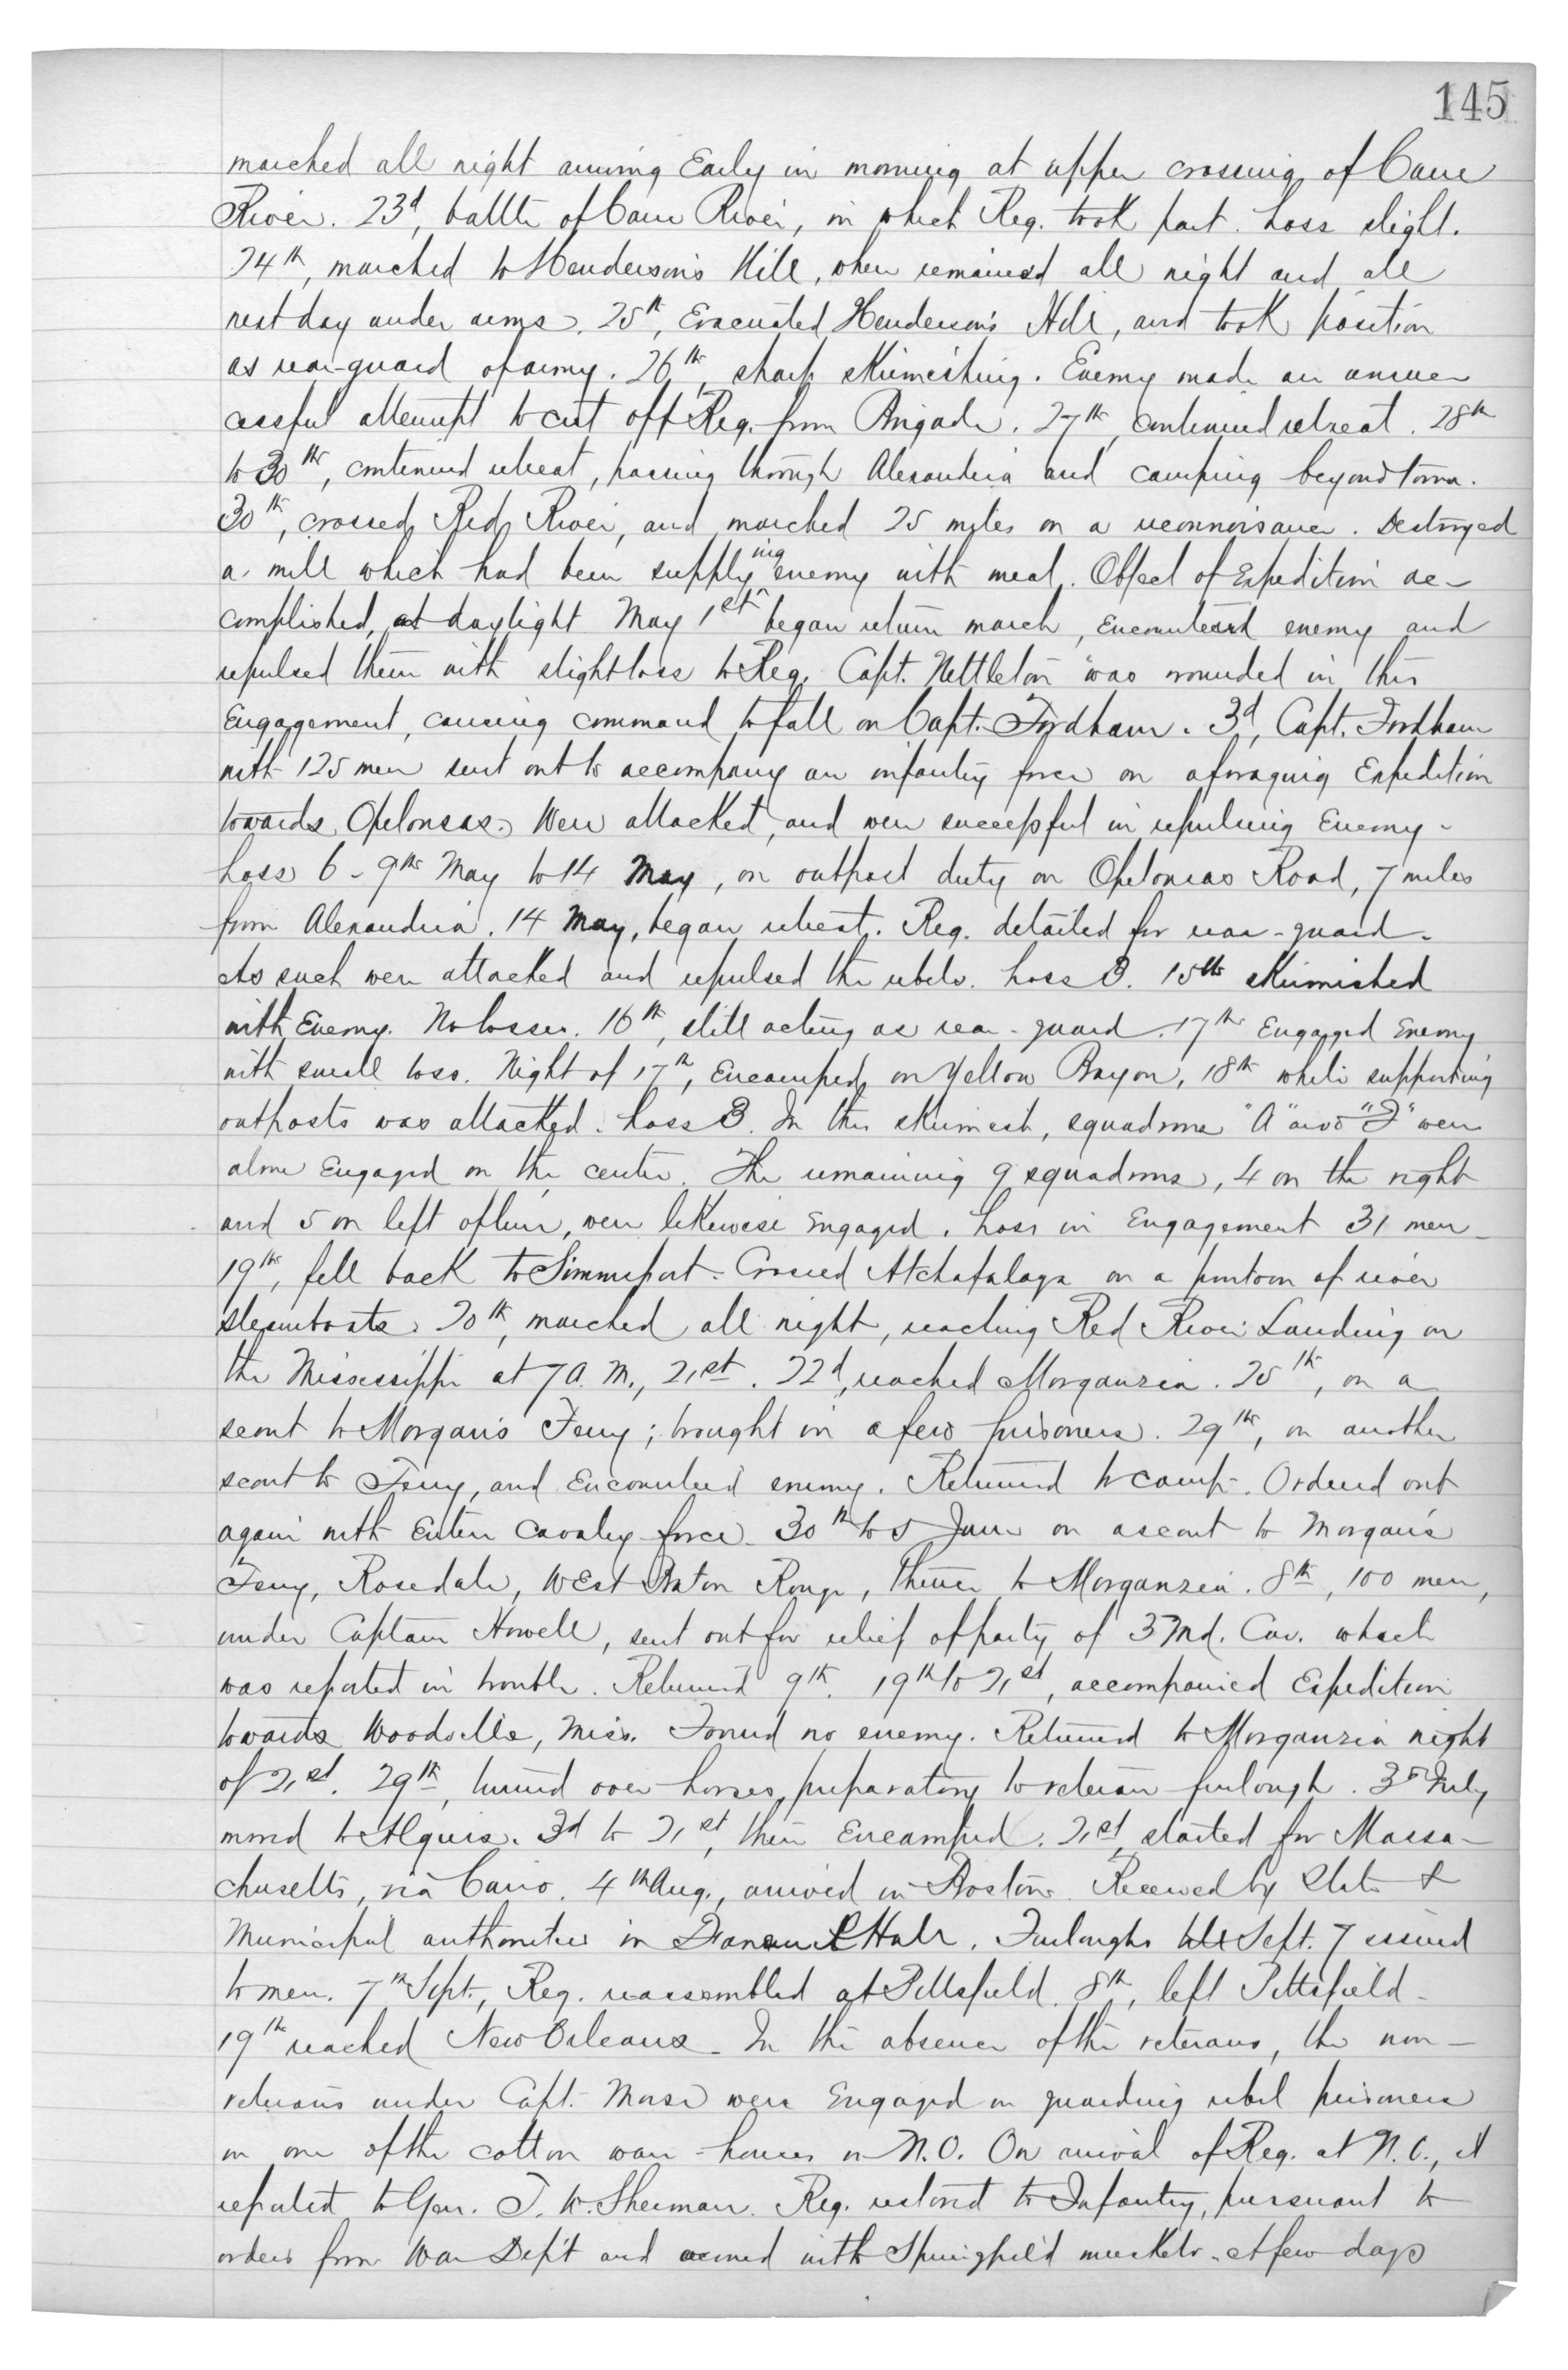 145
marched all night arriving Early in morning at upper crossing of Cane
River. 23d, battle of Cane River, in which Reg. took part. Loss slight.
24th, marched to Henderson's Hill, where remained all night and all
next day under arms. 25th, Evacuated Henderson's Hill, and took position
as rear-guard of army. 26th, sharp skirmishing. Enemy made an unsuc
cessful attempt to cut off Reg. from Brigade. 27th, continued retreat. 28th
to 30th, continued retreat, passing through Alexandria and camping beyond town.
30th, crossed Red River, and marched 25 miles on a reconnoisance. Destroyed
a mill which had been supplying enemy with meal. Object of Expedition ac-
complished, at daylight May 1st began return march, Encountered enemy and
repulsed them with slight loss to Reg. Capt. Nettleton was wounded in this
Engagement, causing command to fall on Capt. Fordham. 3d, Capt. Fordham
with 125 men sent out to accompany an infantry force on a foraging Expedition
towards Opelousas. Were attacked, and were successful in repulsing Enemy-
Loss 6 - 9th May to 14 May, on outpost duty on Opelousas Road, 7 miles
from Alexandria. 14 May, began retreat. Reg. detailed for rear-guard.
As such were attacked and repulsed the rebels. Loss 3. 15th skirmished
with Enemy. No losses. 16th, still acting as rear-guard. 17th Engaged Enemy
with small loss. Night of 17th, Encamped on Yellow Bayou, 18th while supporting
outposts was attacked. Loss 3. In this skirmish, squadrons "A" and "F" were
alone Engaged on the center. The remaining 9 squadrons, 4 on the right
and 5 on left of line, were likewise Engaged. Loss in Engagement 31 men-
19th, fell back to Simmsport. Crossed Atchafalaya on a pontoon of river
steamboats. 20th, marched all night, reaching Red River Landing on
the Mississippi at 7 A.M., 21st. 22d, reached Morganzia. 25th, on a
scout to Morgan's Ferry; brought in a few prisoners. 29th, on another
scout to Ferry, and Encountered enemy. Returned to camp. Ordered out
again with Entire Cavalry force. 30th to 5 June on a scout to Morgan's
Ferry, Rosedale, West Baton Rouge, thence to Morganzia. 8th, 100 men,
under Captain Howell, sent out for relief of party of 3 Md. Cav. which
was reported in trouble. Returned 9th. 19th to 21st, accompanied Expedition
towards Woodville, Miss. Found no enemy. Returned to Morganzia night
of 21st. 29th, turned over horses, preparatory to veteran furlough. 3d July
moved to Algiers. 3d to 21st, then Encamped. 21st, started for Massa-
chusetts, via Cairo. 4th Aug., arrived in Boston. Received by State &
Municipal authorities in Faneuil Hall. Furloughs till Sept. 7 issued
to men. 7th Sept., Reg. reassembled at Pittsfield. 8th, left Pittsfield-
19th reached New Orleans. In the absence of the veterans, the non-
veterans under Capt. Morse were Engaged in guarding rebel prisoners
in one of the cotton ware-houses in N.O. On arrival of Reg. at N.O., it
reported to Gen. T. W. Sherman. Reg. restored to Infantry, pursuant to
orders from War Dep't and armed with Springfield muskets. A few days